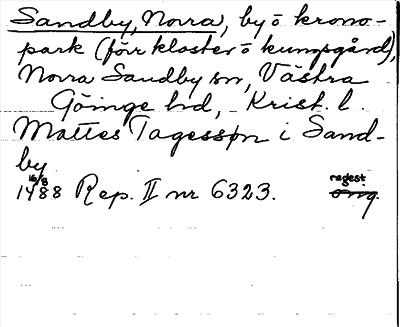 Sandby, Norra, by o krono-
park (förr kloster o kungsgård),
Norra Sandby sn, Västra
Göinge hd, Krist. l.
Mattes Tagesson i Sand-
by
16/8
1488 Rep. II nr 6323. regest
orig.